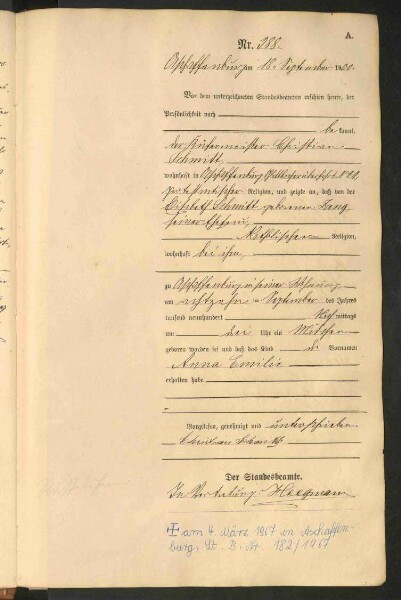 A.
Nr. 388.
Aschaffenburg am 18. September 1900.
Vor dem unterzeichneten Standesbeamten erschien heute, der
Persönlichkeit nach
bekannt,
der Küfermeister Christian
Schmitt,
wohnhaft in Aschaffenburg
protestantischer Religion, und zeigte an, daß von der
Elisabeth Schmitt geborenen Lang
seiner Ehefrau,
katholischer Religion,
wohnhaft bei ihm,
zu Aschaffenburg in seiner Wohnung
am achtzehnten September des Jahres
tausend neunhundert Nachmittags
um drei Uhr ein Mädchen
geboren worden sei und daß das Kind die Vornamen
Anna Emilie
erhalten habe
Vorgelesen, genehmigt und unterschrieben
Christian Schmitt
Der Standesbeamte.
In Vertretung: Hoegmann
am 4. März 1967 in Aschaffen-
burg, St. B. Nr. 182/1967